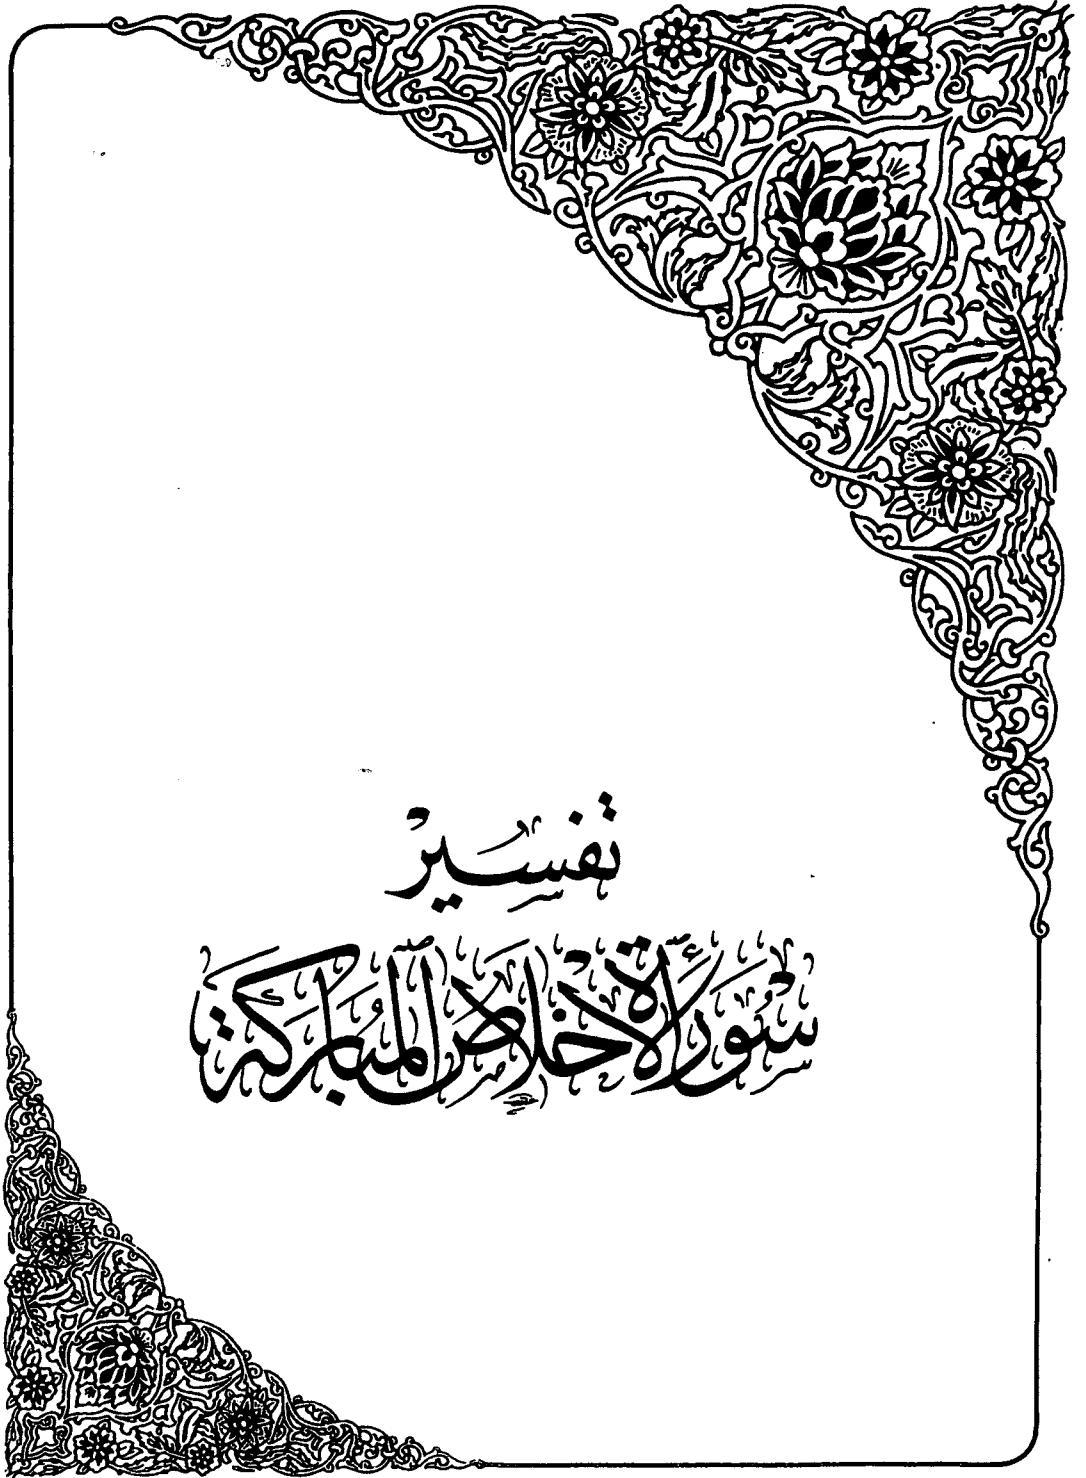 تفسير
سورة الإخلاص المباركة